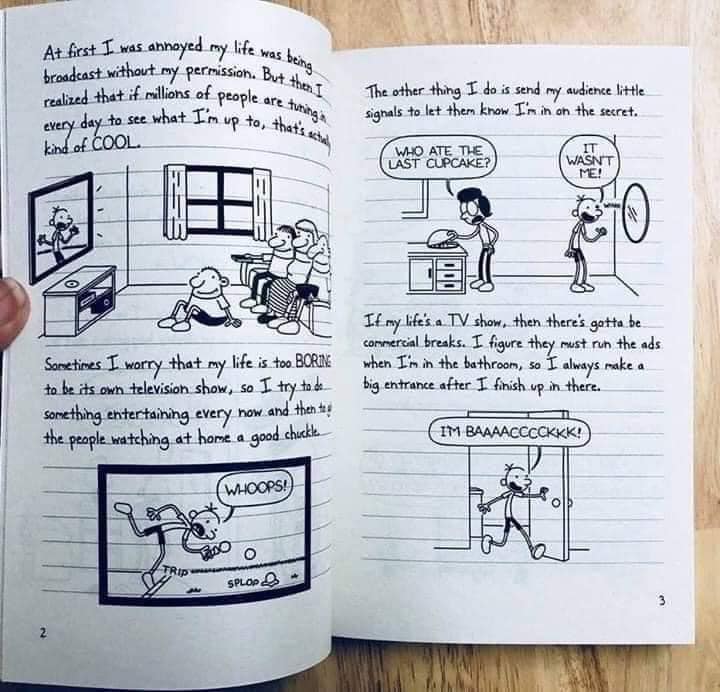 At first I was annoyed my life was being
broadcast without my permission. But then I
realized that if millions of people are tuning in
every day to see what I'm up to, that's actually
kind of COOL.
Sometimes I worry that my life is too BORING
to be its own television show, so I try to do
something entertaining every now and then to
the people watching at home a good chuckle.
WHOOPS!
TRIP
SPLOP
2
The other thing I do is send my audience little
signals to let them know I'm in on the secret.
WHO ATE THE
LAST CUPCAKE?
IT
WASN'T
ME!
WINK
If my life's a TV show, then there's gotta be
commercial breaks. I figure they must run the ads
when I'm in the bathroom, so I always make a
big entrance after I finish up in there.
I'M BAAAACCCCKKK!
3